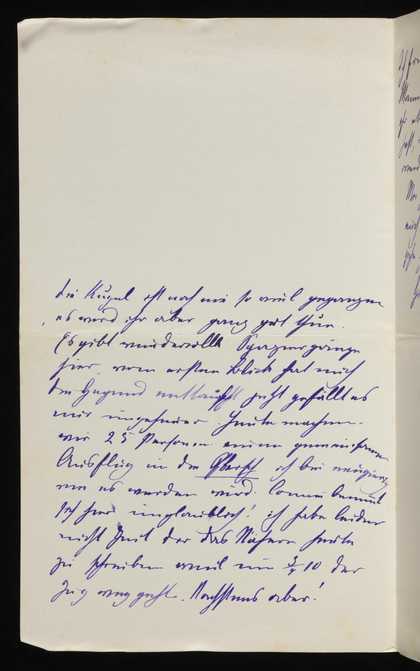 die Kugel ist noch nie so viel gegangen
es wird ihr aber ganz gut thun.
Es gibt wundervolle Spaziergänge
hier, vom ersten Blick hat mich
die Gegend enttäuscht jetzt gefällt es
mir ungeheuer heute machen
wir 25 Personen einen gemeinsamen
Ausflug in die ich bin neugierig
wie es werden wird. benimmt
sich hier unglaublich! ich habe leider
nicht Zeit dir das Nähere heute
zu schreiben weil um 10 der
Zug weggeht. Nächstens aber!